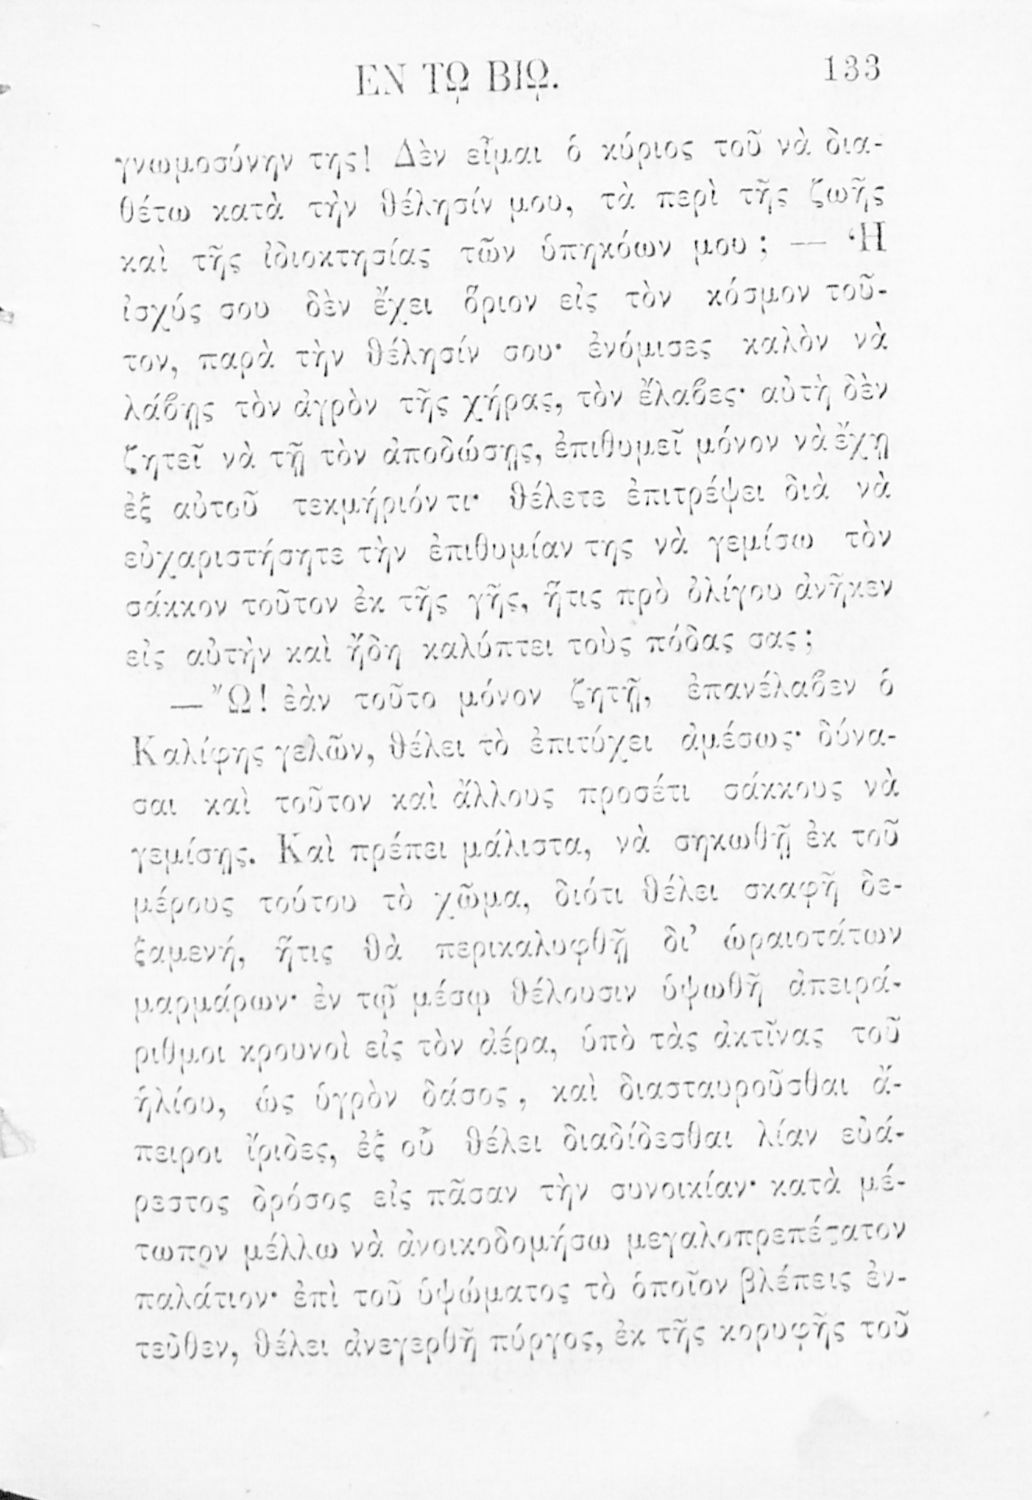 ΕΝ Τῼ ΒΙῼ. 133
γνωμοσύνην της! Δὲν εἶμαι ὁ κύριος τοῦ νὰ δια-
θέτω κατὰ τὴν θέλησίν μου, τὰ περὶ τῆς ζωῆς
καὶ τῆς ἰδιοκτησίας τῶν ὑπηκόων μου ; — Ἡ
ἰσχύς σου δὲν ἔχει ὅριον εἰς τὸν κόσμον τοῦ-
τον, παρὰ τὴν θέλησίν σου· ἐνόμισες καλὸν νὰ
λάβῃς τὸν ἀγρὸν τῆς χήρας, τὸν ἔλαβες· αὐτὴ δὲν
ζητεῖ νὰ τῇ τὸν ἀποδώσῃς, ἐπιθυμεῖ μόνον νὰ ἔχῃ
ἐξ αὐτοῦ τεκμήριόν τι· θέλετε ἐπιτρέψει διὰ νὰ
εὐχαριστήσητε τὴν ἐπιθυμίαν της νὰ γεμίσω τὸν
σάκκον τοῦτον ἐκ τῆς γῆς, ἥτις πρὸ ὀλίγου ἀνῆκεν
εἰς αὐτὴν καὶ ἤδη καλύπτει τοὺς πόδας σας ;
— Ὢ! ἐὰν τοῦτο μόνον ζητῇ, ἐπανέλαβεν ὁ
Καλίφης γελῶν, θέλει τὸ ἐπιτύχει ἀμέσως· δύνα-
σαι καὶ τοῦτον καὶ ἄλλους προσέτι σάκκους νὰ
γεμίσῃς. Καὶ πρέπει μάλιστα, νὰ σηκωθῇ ἐκ τοῦ
μέρους τούτου τὸ χῶμα, διότι θέλει σκαφῆ δε-
ξαμενή, ἥτις θὰ περικαλυφθῇ δι’ ὡραιοτάτων
μαρμάρων· ἐν τῷ μέσῳ θέλουσιν ὑψωθῆ ἀπειρά-
ριθμοι κρουνοὶ εἰς τὸν ἀέρα, ὑπὸ τὰς ἀκτῖνας τοῦ
ἡλίου, ὡς ὑγρὸν δάσος , καὶ διασταυροῦσθαι ἄ-
πειροι ἴριδες, ἐξ οὗ θέλει διαδίδεσθαι λίαν εὐά-
ρεστος δρόσος εἰς πᾶσαν τὴν συνοικίαν· κατὰ μέ-
τωπον μέλλω νὰ ἀνοικοδομήσω μεγαλοπρεπέστατον
παλάτιον· ἐπὶ τοῦ ὑψώματος τὸ ὁποῖον βλέπεις ἐν-
τεῦθεν, θέλει ἀνεγερθῆ πύργος, ἐκ τῆς κορυφῆς τοῦ